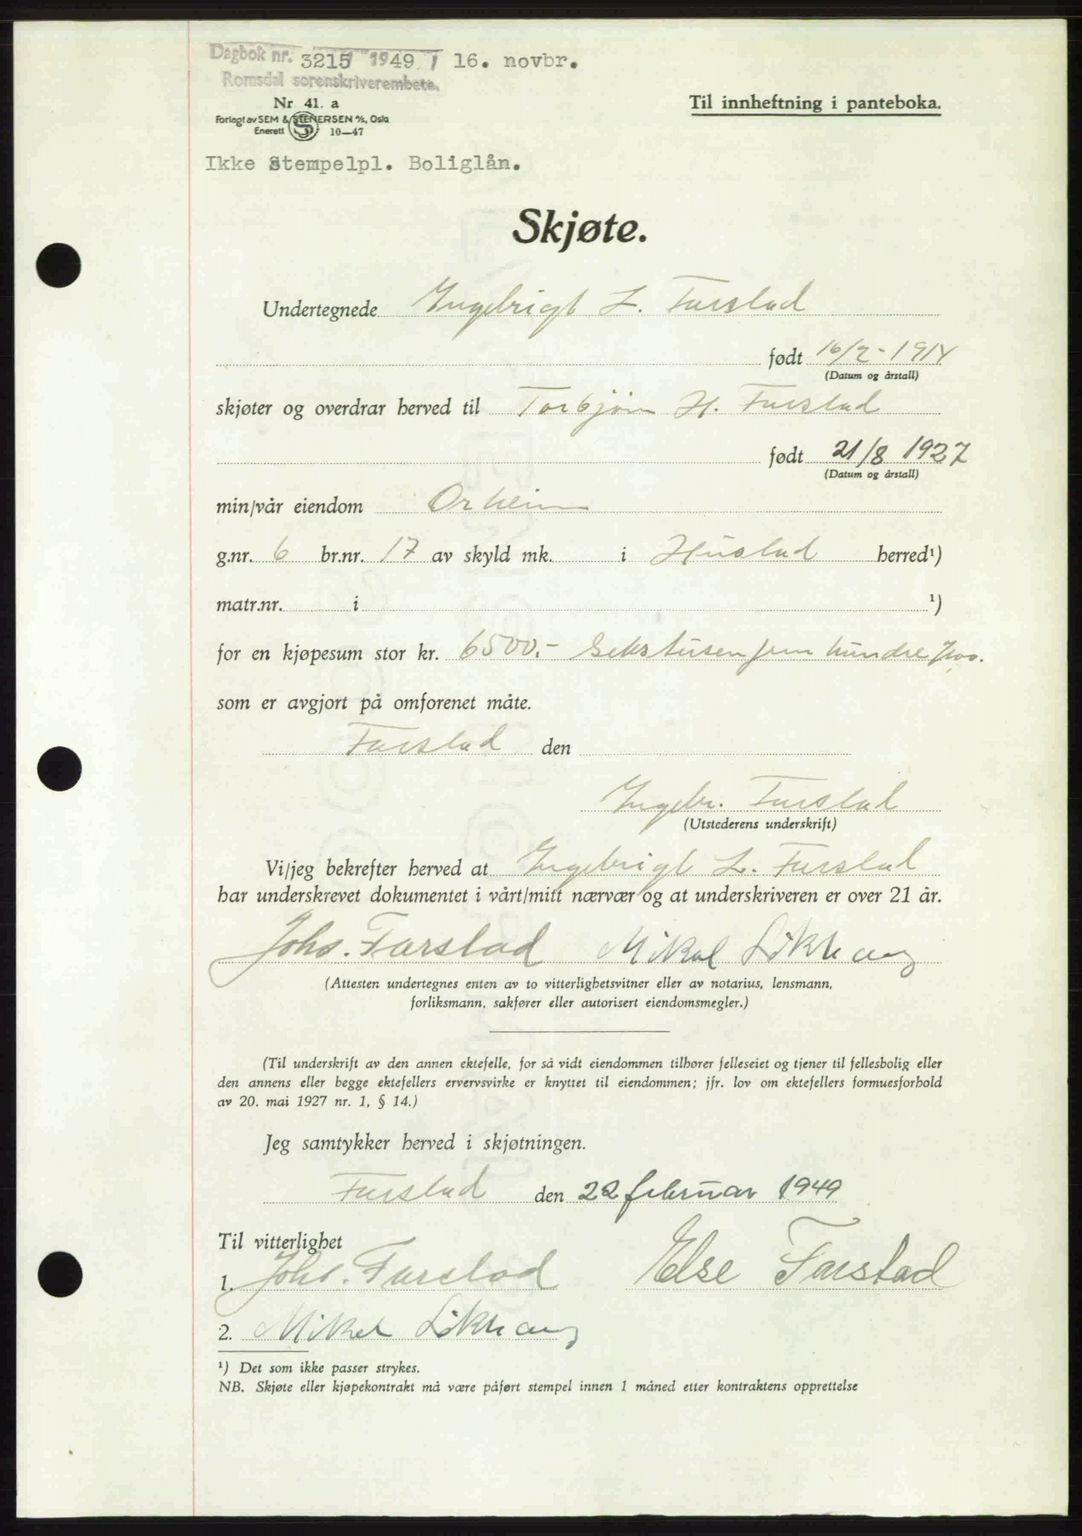 Dagbok nr. 3215 1949 / 16. novbr.
Romsdal sorenskriverembete.
Nr 41. a
Til innheftning i panteboka.
Forlagt av SEM & STENERSEN A/S, Oslo
Enerett S 10—47
Ikke Stempelpl. Boliglån.
Skjøte.
Undertegnede Ingebrigt L. Farstad
født 16/2-1914
(Datum og årstall)
skjøter og overdrar herved til Torbjørn H. Farstad
født 21/8 1927
(Datum og årstall)
min/vår eiendom Orheim
g.nr. 6 br.nr. 17 av skyld mk. i Hustad herred¹)
matr.nr. i ¹)
for en kjøpesum stor kr. 6500.- Sekstusen fem hundre
som er avgjort på omforenet måte.
Farstad den
Ingebr. Farstad
(Utstederens underskrift)
Vi/jeg bekrefter herved at Ingebrigt L. Farstad
har underskrevet dokumentet i vårt/mitt nærvær og at underskriveren er over 21 år.
Johs. Farstad Mikal Løkhaug
(Attesten undertegnes enten av to vitterlighetsvitner eller av notarius, lensmann,
forliksmann, sakfører eller autorisert eiendomsmegler.)
(Til underskrift av den annen ektefelle, for så vidt eiendommen tilhører felleseiet og tjener til fellesbolig eller
den annens eller begge ektefellers ervervsvirke er knyttet til eiendommen; jfr. lov om ektefellers formuesforhold
av 20. mai 1927 nr. 1, § 14.)
Jeg samtykker herved i skjøtningen.
Farstad den 22 februar 1949
Til vitterlighet
1. Johs. Farstad Else Farstad
2. Mikal Løkhaug
¹) Det som ikke passer strykes.
NB. Skjøte eller kjøpekontrakt må være påført stempel innen 1 måned etter kontraktens opprettelse